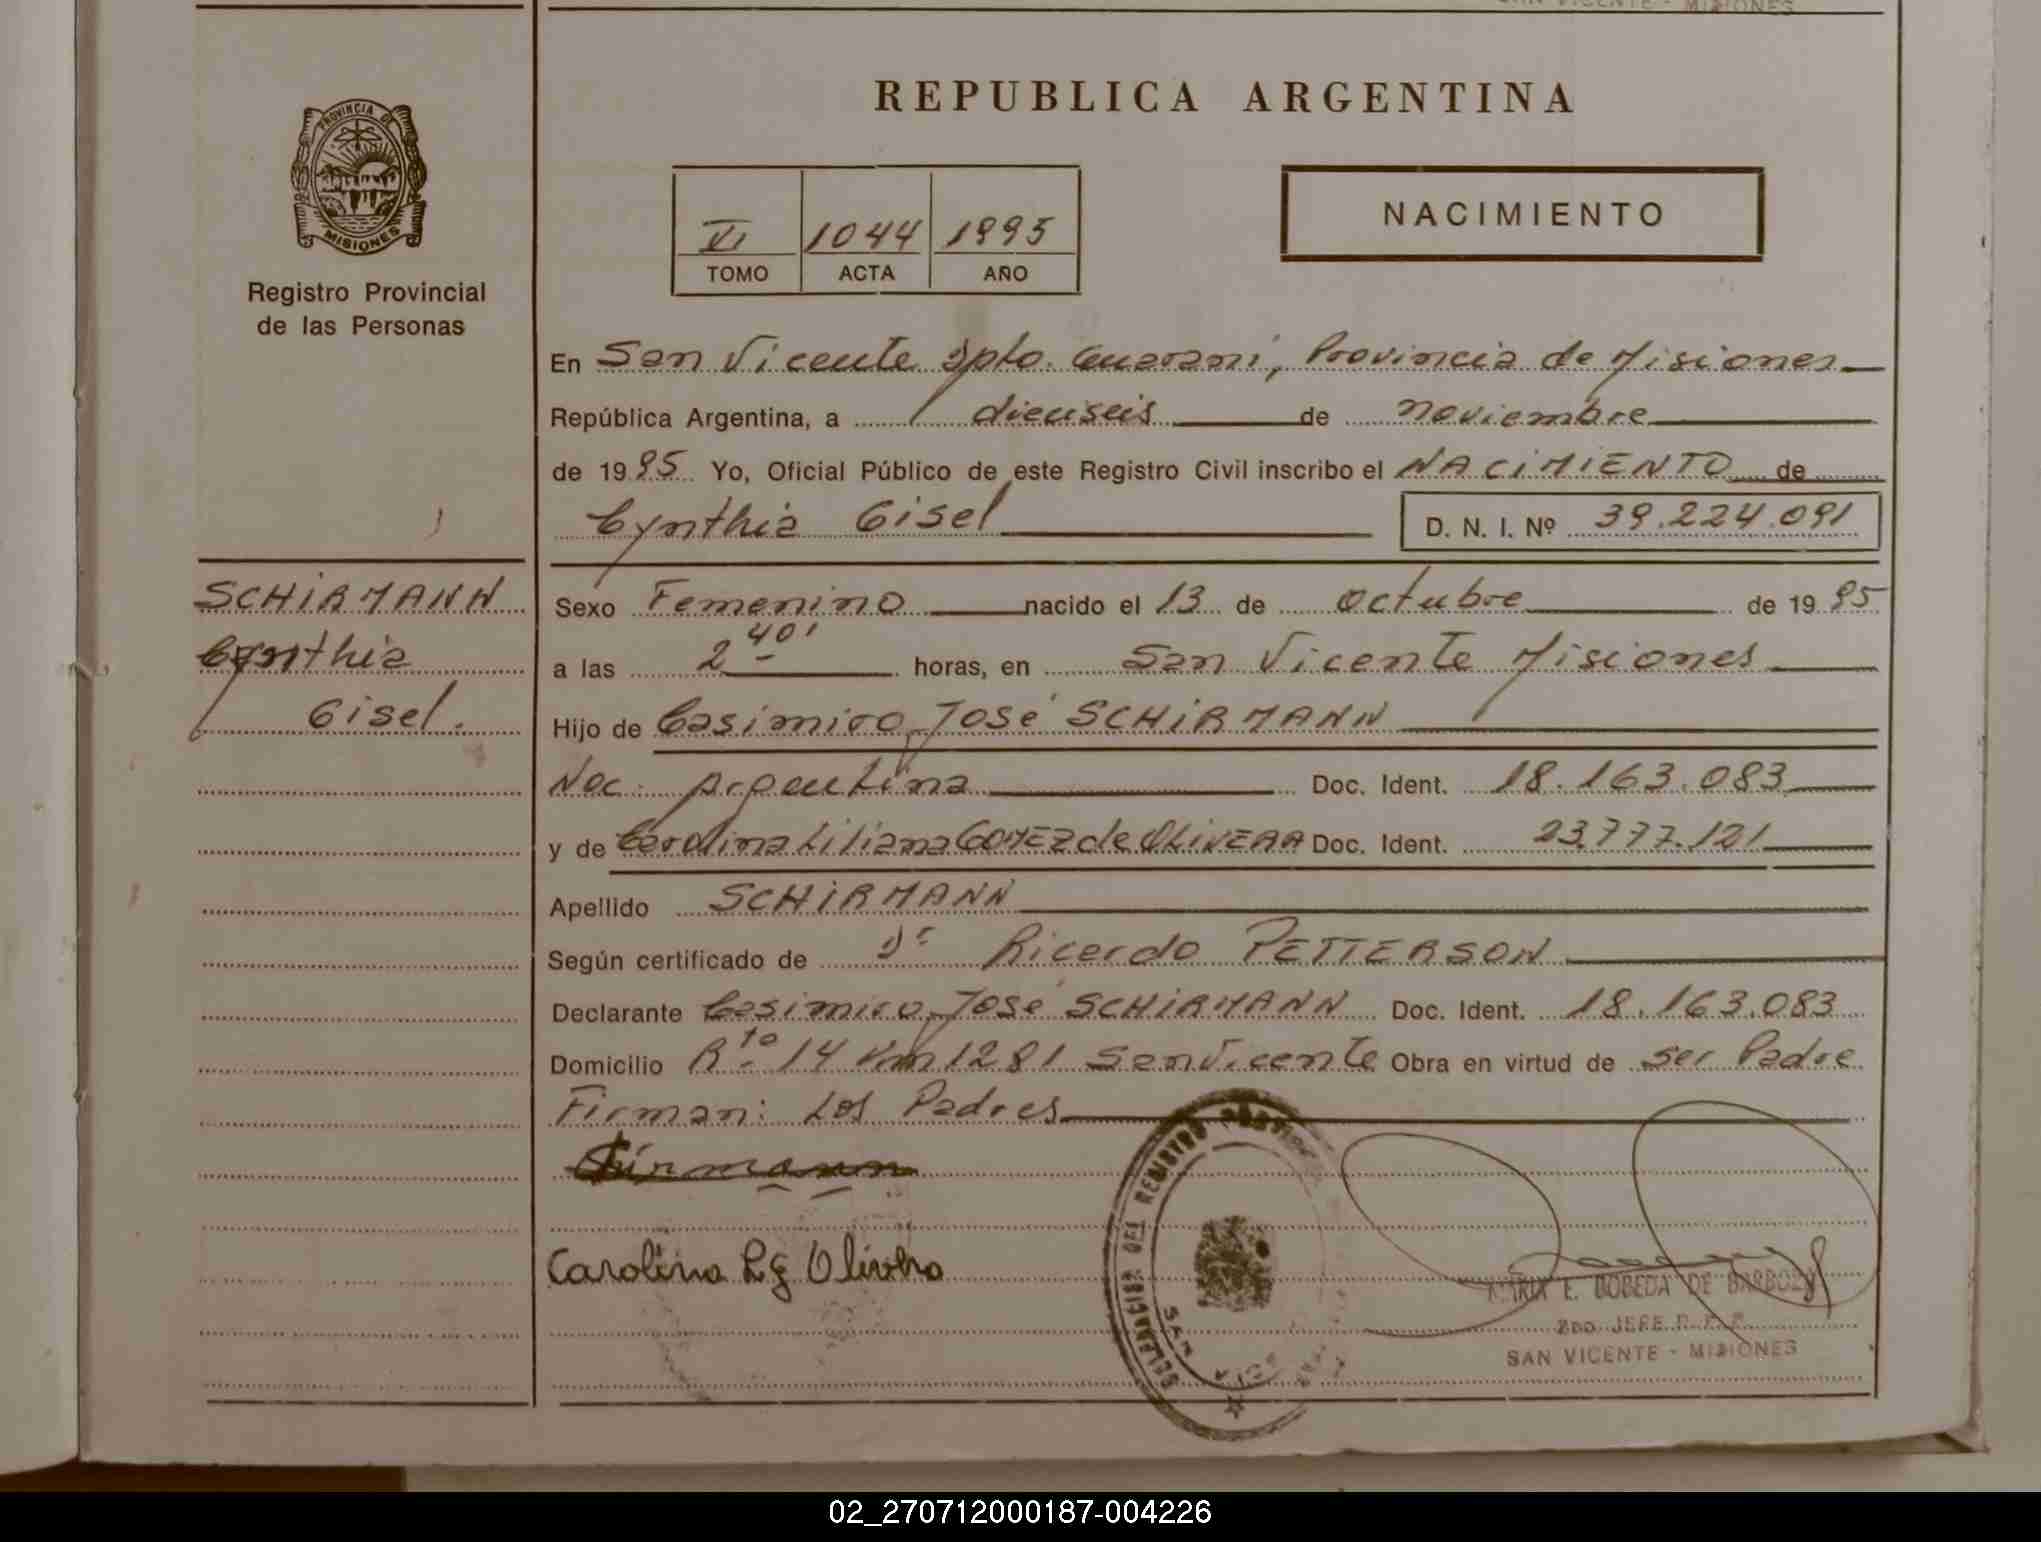 SAN VICENTE - MISIONES
REPUBLICA ARGENTINA
PROVINCIA DE
MISIONES
Registro Provincial
de las Personas
VI 1044 1995
TOMO ACTA AÑO
NACIMIENTO
En San Vicente Dpto. Guaraní, Provincia de Misiones
República Argentina, a dieciseis de noviembre
de 1995 Yo, Oficial Público de este Registro Civil inscribo el NACIMIENTO de
Cynthia Gisel D. N. I. Nº 39.224.091
SCHIRMANN
Cynthia
Gisel.
Sexo Femenino nacido el 13 de octubre de 1995
a las 2 40' horas, en San Vicente Misiones
Hijo de Casimiro José SCHIRMANN
Nac. Argentina Doc. Ident. 18.163.083
y de Carolina Liliana GOMEZ de OLIVERA Doc. Ident. 23.777.121
Apellido SCHIRMANN
Según certificado de Dr Ricardo PETTERSON
Declarante Casimiro José SCHIRMANN Doc. Ident. 18.163.083
Domicilio Rta 14 Km 1281 San Vicente Obra en virtud de ser Padre
Firman: Los Padres
Carolina L G Olivera
MARIA E. BOBEDA DE BARBOZA
2do JEFE R. P. P.
SAN VICENTE - MISIONES
02_270712000187-004226